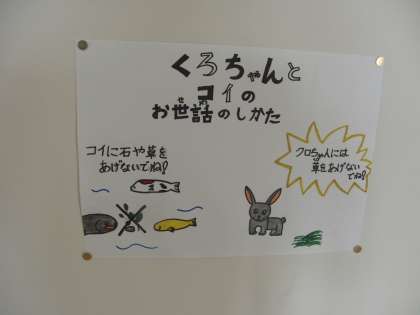 くろちゃんと
コイの
お世話のしかた
せわ
コイに石や草を
あげないでね!
クロちゃんには
草をあげない
でね!